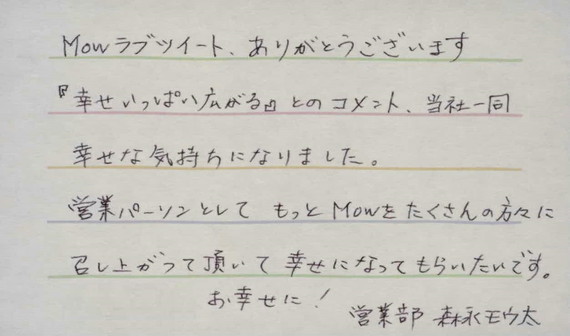 Mowラブツイート、ありがとうございます
『幸せいっぱい広がる』とのコメント、当社一同
幸せな気持ちになりました。
営業パーソンとして もっとMowをたくさんの方々に
召し上がって頂いて幸せになってもらいたいです。
お幸せに！
営業部 森永モウ太